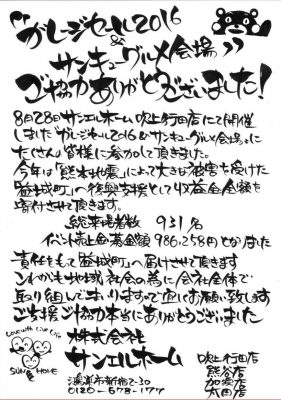 “ガレージセール2016
&
サンキューグルメ会場”
ご協力ありがとうございました！
8月28日サンエルホーム吹上行田店にて開催
しました ガレージセール2016&サンキューグルメ会場に
たくさん皆様に参加して頂きました。
今年は「熊本地震」によって大きな被害を受けた
「益城町」への復興支援として収益金全額を
寄付させて頂きます。
総来場者数 931名
イベント売上金募金額 986,258円となりました
責任をもって益城町へお届けさせて頂きます
これからも地域社会の為に会社全体で
取り組んでまいりますので宜しくお願い致します
ご支援ご協力本当にありがとうございました
Love with Live Life
SUN L HOME
株式会社
サンエルホーム
深谷市新増2-30
0120-678-177
吹上行田店
熊谷店
加須店
太田店